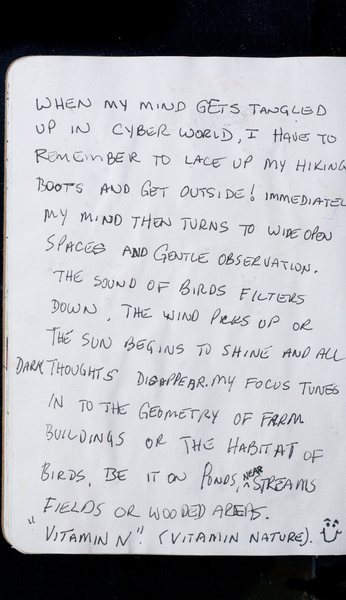 WHEN MY MIND GETS TANGLED
UP IN CYBER WORLD, I HAVE TO
REMEMBER TO LACE UP MY HIKING
BOOTS AND GET OUTSIDE! IMMEDIATEL
MY MIND THEN TURNS TO WIDE OPEN
SPACES AND GENTLE OBSERVATION.
THE SOUND OF BIRDS FILTERS
DOWN, THE WIND PICKS UP OR
THE SUN BEGINS TO SHINE AND ALL
DARK THOUGHTS DISAPPEAR. MY FOCUS TUNES
IN TO THE GEOMETRY OF FARM
BUILDINGS OR THE HABITAT OF
BIRDS, BE IT ON PONDS, NEAR STREAMS
FIELDS OR WOODED AREAS.
"VITAMIN N"! (VITAMIN NATURE).